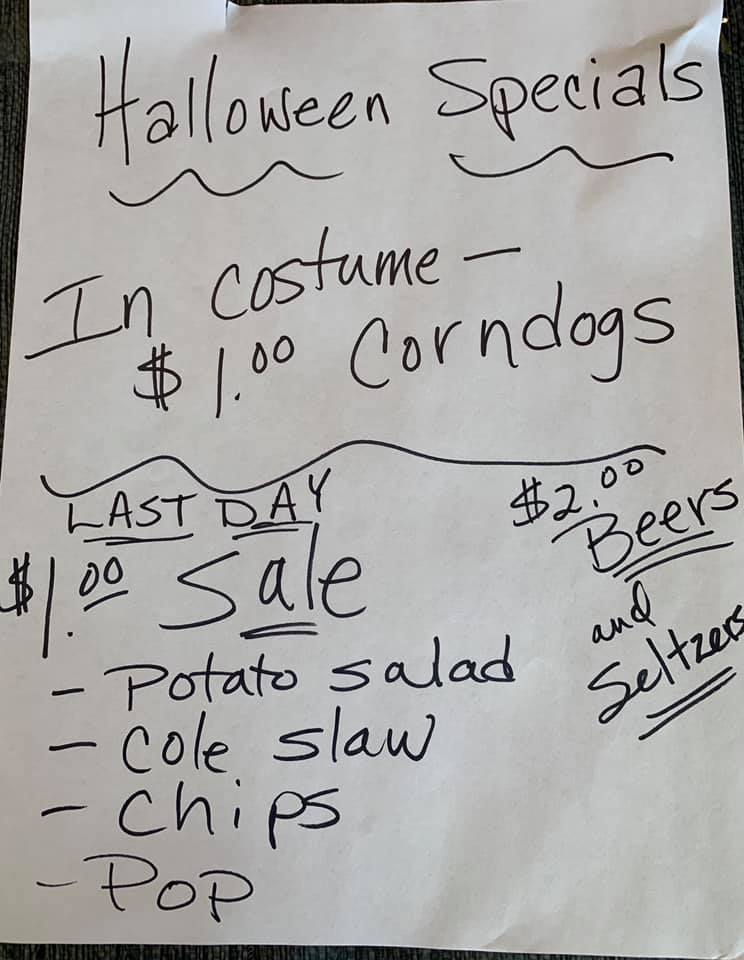 Halloween Specials
In costume -
$1.00 Corndogs
LAST DAY
$1.00 Sale
- Potato salad
- Cole slaw
- Chips
- Pop
$2.00
Beers
and
Seltzers